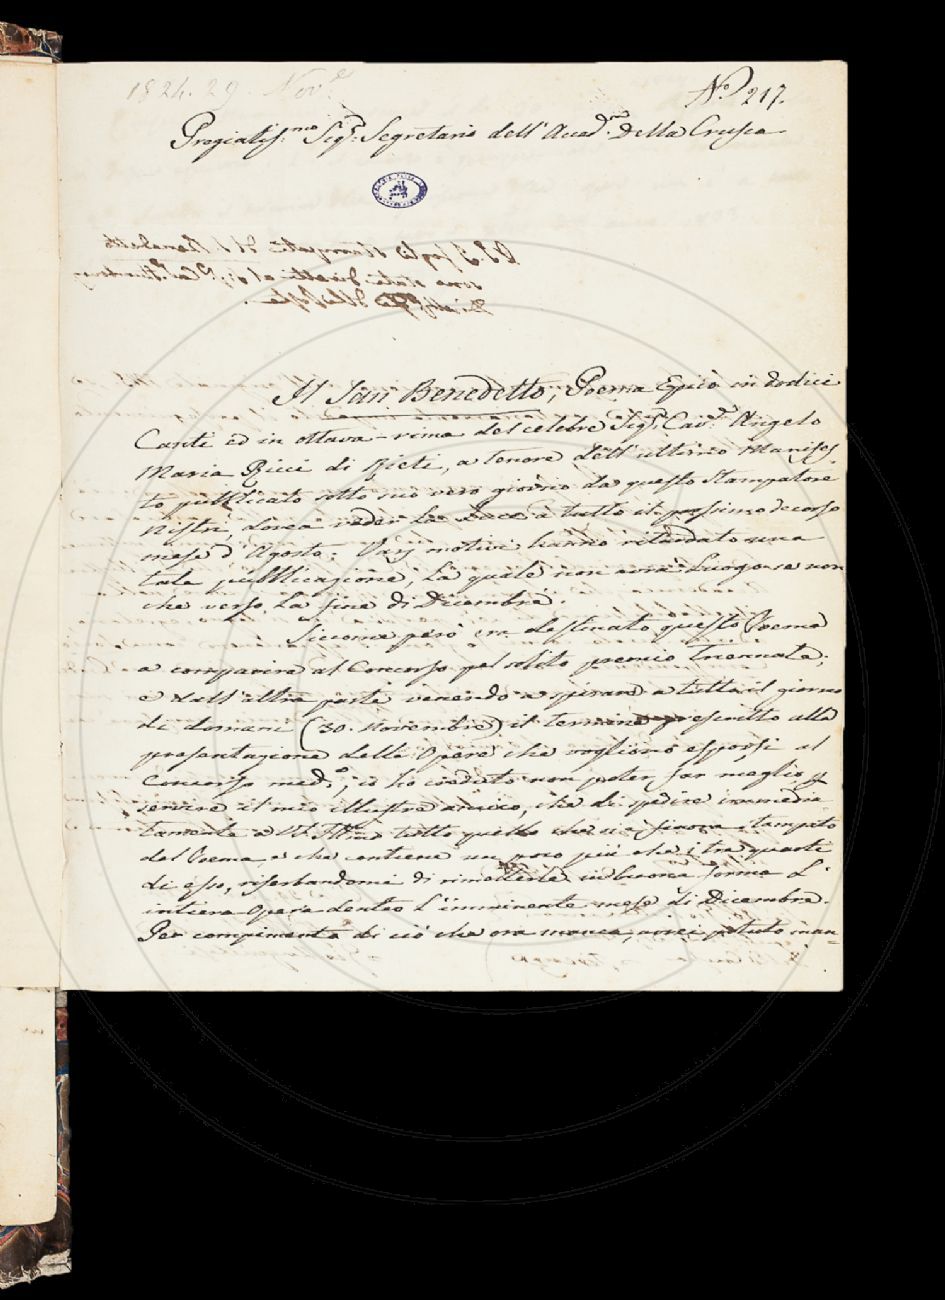 1824. 29. Nov.e
N.o 217.
Pregiatiss.mo Sig.r Segretario dell'Accad.a della Crusca
Il San Benedetto, Poema Epico in dodici
Canti ed in ottava-rima del celebre Sig.r Cav.r Angelo
Maria Ricci di Rieti, a tenore dell'ultimo Manifes
to pubblicato sotto suo vero giorno da questo Stampatore
Nistri, dovea veder la luce a tutto il passimo decorso
mese d'Agosto. Varj motivi hanno ritardato una
tale pubblicazione, la quale non avrà luogo se non
che verso la fine di Dicembre.
Siccome però era destinato questo Poema
a comparire al Concorso pel solito premio Triennale;
e dall'altra parte venendo a spirare a tutto il giorno
di domani (30. Novembre) il termine prescritto alla
presentazione delle Opere che vogliono esporsi al
Concorso med.o, io ho creduto non poter far meglio p
servire il mio illustre amico, che di spedire immedia-
tamente a V.S. Ill.ma tutto quello che sia finora stampato
del Poema e che contiene un poco più che i tre quarti
di esso, riserbandomi di rimetterle in buona forma l'
intiera opera dentro l'imminente mese di Dicembre.
Per compimento di ciò che ora manca, avrei potuto man-